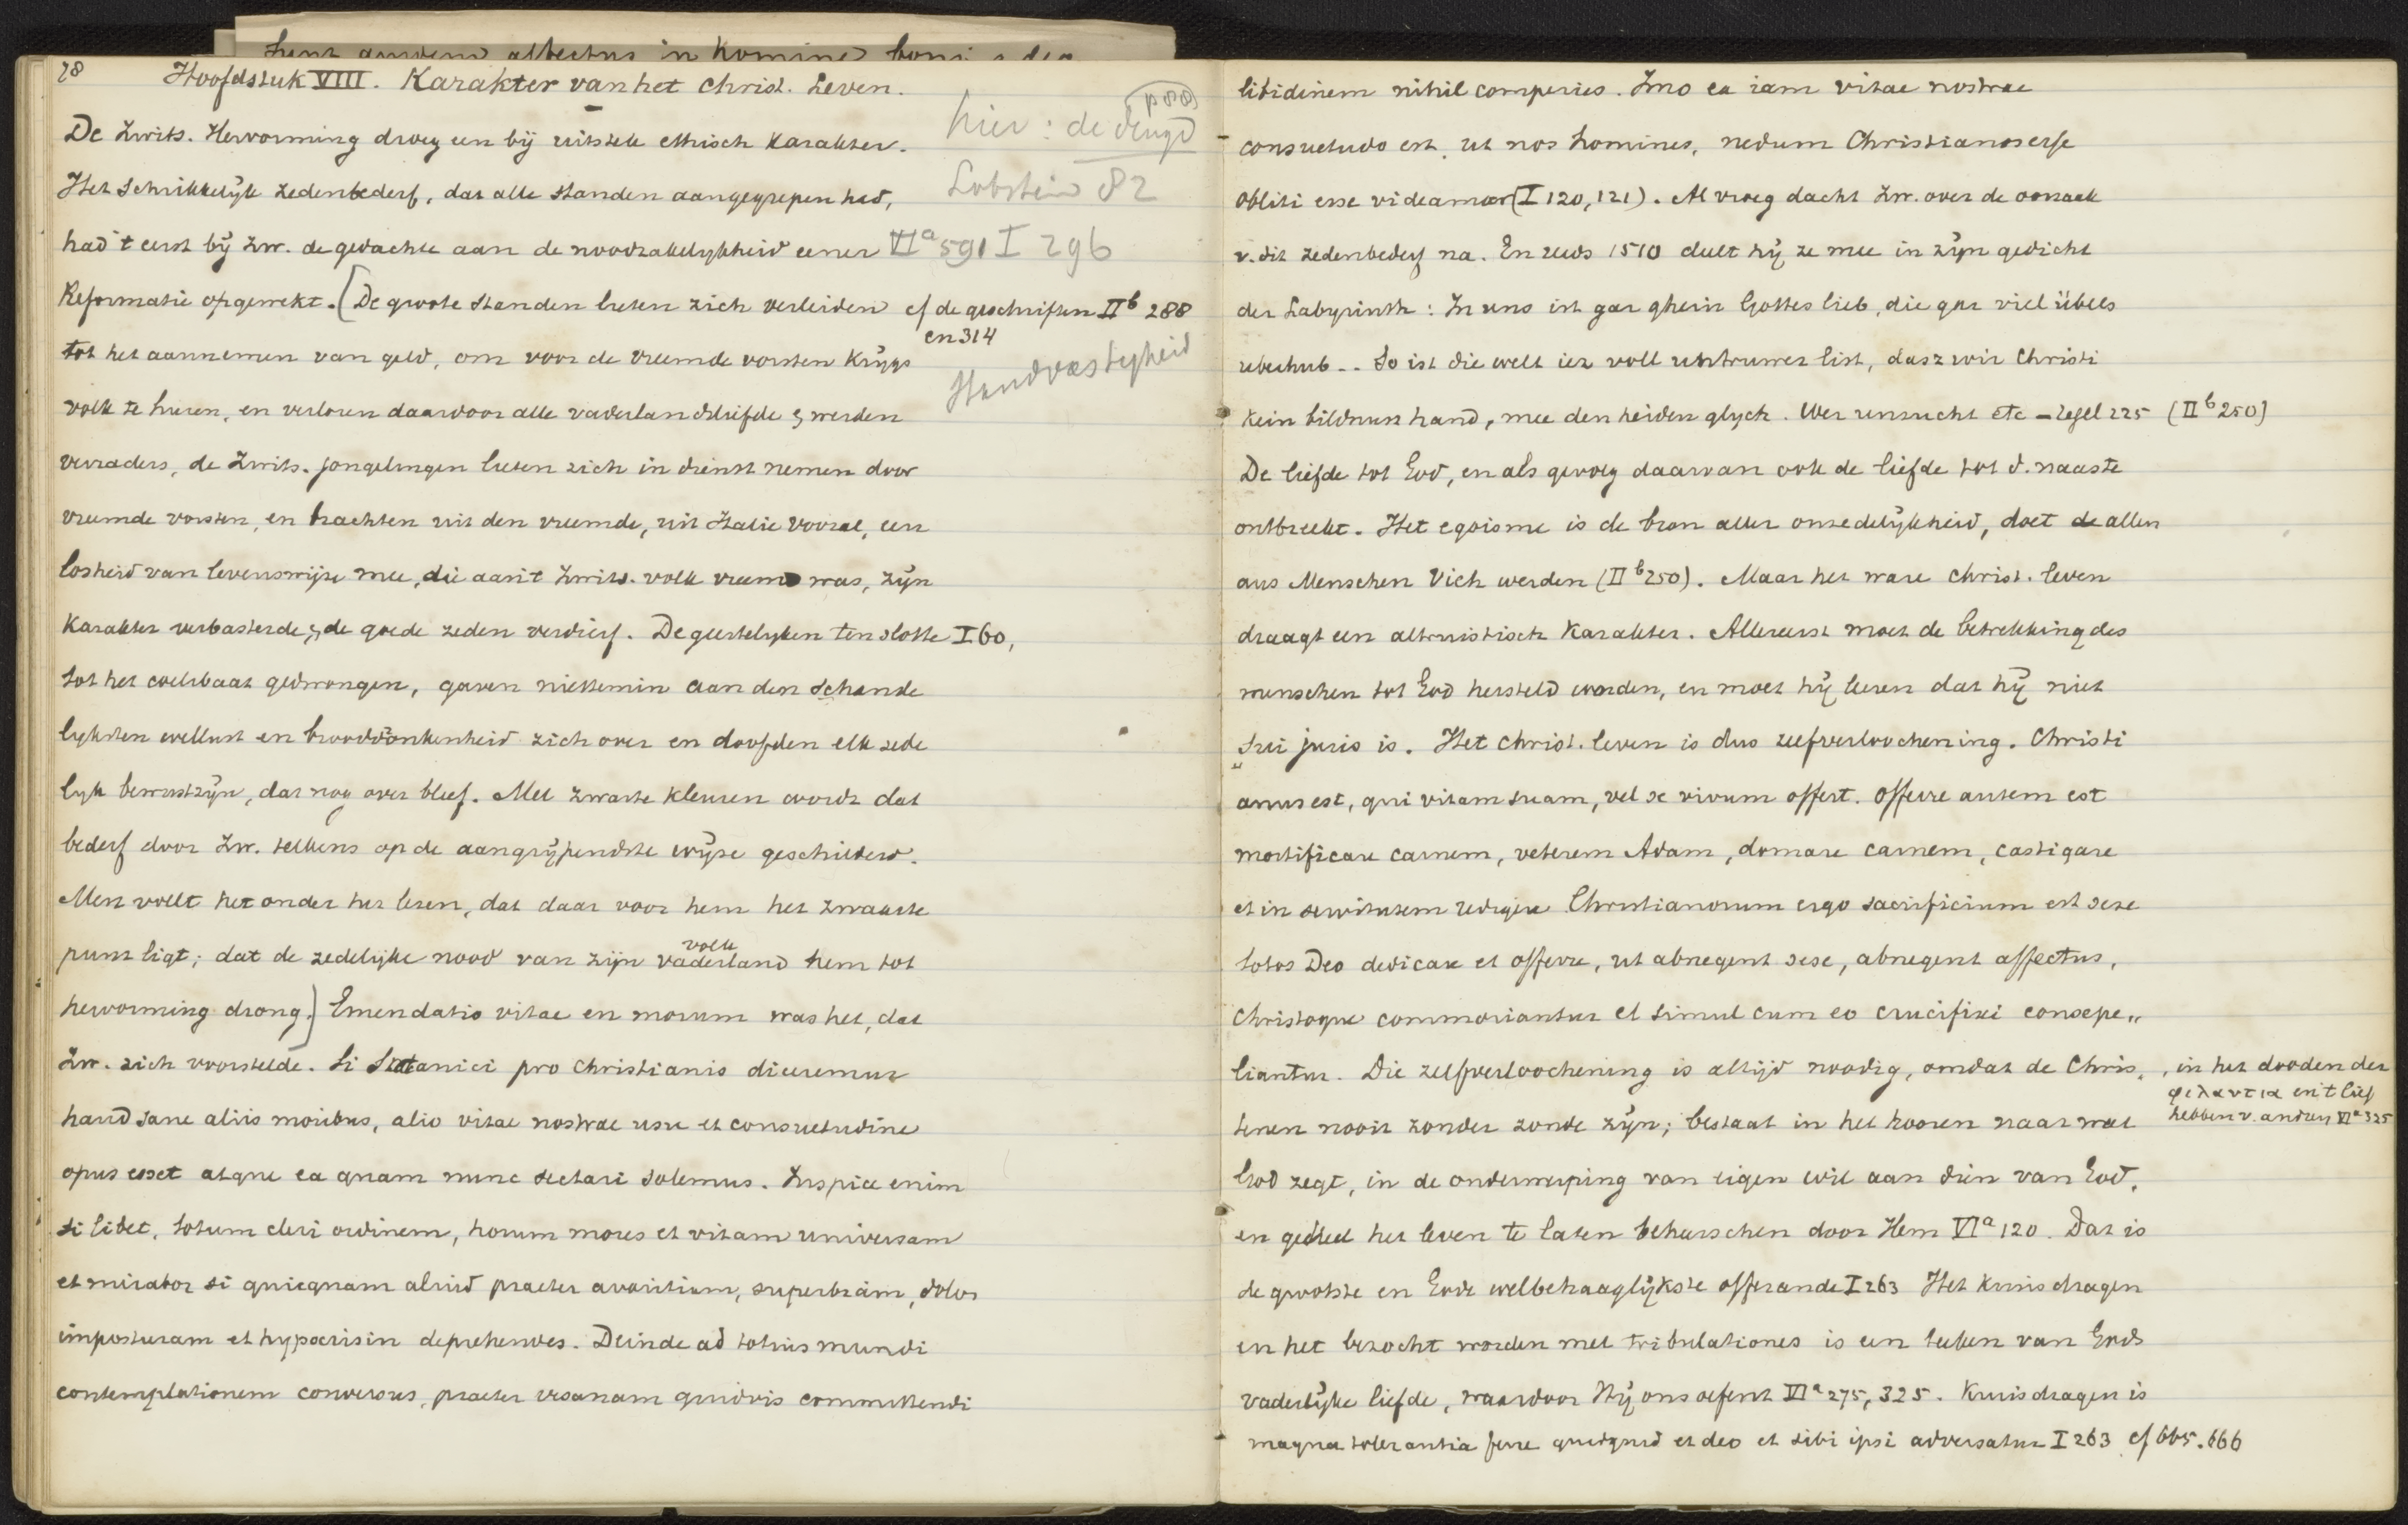 78 Hoofdstuk VIII. Karakter van het Christ. Leven.
De Zwits. Hervorming droeg een bij uitstek ethisch karakter.
Het schrikkelijk zedenbederf, dat alle standen aangegrepen had,
had 't eerst bij Zw. de gedachte aan de noodzakelijkheid eener
Reformatie opgewekt. [De groote standen lieten zich verleiden
tot het aannemen van geld, om voor de vreemde vorsten krijgs
volk te huren, en verloren daardoor alle vaderlandsliefde & werden
verraders, de Zwits. jongelingen lieten zich in dienst nemen door
vreemde vorsten, en brachten uit den vreemde, uit Italie vooral, een
losheid van levenswijze mee, die aan 't Zwits. volk vreemd was, zijn
karakter verbasterde, & de goede zeden verdierf. De geestelyken ten slotte I 60,
tot het coelibaat gedwongen, gaven niettemin aan den schande
lyksten wellust en brooddronkenheid zich over en doofden elk zede
lyk bewustzijn, dat nog over bleef. Met zwarte kleuren wordt dat
bederf door Zw. telkens op de aangrijpendste wijze geschilderd.
Men voelt het onder het lezen, dat daar voor hem het zwaarste
punt ligt; dat de zedelijke nood van zijn vaderland hem tot
volk
hervorming drong.] Emendatio vitae en morum was het, dat
Zw. zich voorstelde. Si Satanici pro Christianis diceremur
haud sane aliis moribus, alio vitae nostrae usu et consuetudine
opus esset atque ea quam nunc sectari solemus. Inspice enim
si libet, totum cleri ordinem, horum mores et vitam universam
et mirabor si quicquam aliud praeter avaritiam, superbiam, dolos
imposturam et hypocrisin deprehendes. Deinde ad totius mundi
contemplationem conversus, praeter vesanam quidvis committendi
hier: de deugd
p 80)
Lobstein 82
VIa 591 I 296
cf de geschriften IIb 288
en 314
Handvastigheid
libidinem nihil comperies. Imo ea iam vitae nostrae
consuetudo est, ut nos homines, nedum Christianos esse
obliti esse videamur (I 120, 121). Al vroeg dacht Zw. over de oorzaak
v. dit zedenbederf na. En reeds 1510 deelt hij ze mee in zijn gedicht
der Labyrinth: In uns ist gar ghein Gottes lieb, die gar viel übels
ueberhub -- So ist die welt iez voll untruwer list, dasz wir Christi
kein bildnuss hand, mee den heiden glych. Wer unzucht etc - regel 225 (IIb 250)
De liefde tot God, en als gevolg daarvan ook de liefde tot d. naaste
ontbreekt. Het egoisme is de bron aller onzedelijkheid, doet de allen
aus Menschen Vieh werden (IIb 250). Maar het ware christ. leven
draagt een altruistisch karakter. Allereerst moet de betrekking des
menschen tot God hersteld worden, en moet hij leeren dat hij niet
sui juris is. Het christ. leven is dus zelfverloochening. Christi
anus est, qui vitam suam, vel se vivum offert. Offerre autem est
mortificare carnem, veterem Adam, domare carnem, castigare
et in servitutem redigere Christianorum ergo sacrificium est sese
totos Deo dedicare et offerre, ut abnegent sese, abnegent affectus,
Christoque commoriantur et simul cum eo crucifixi consepe„
liantur. Die zelfverloochening is altijd noodig, omdat de Chris„
tenen nooit zonder zonde zijn; bestaat in het hooren naar wat
God zegt, in de onderwerping van eigen wil aan dien van God,
en geheel het leven te laten beheerschen door Hem VIa 120. Dat is
de grootste en Gode welbehaaglijkste offerande I 263 Het kruisdragen
en het bezocht worden met tribulationes is een teeken van Gods
vaderlijke liefde, waardoor Hij ons oefent VIa 275, 325. Kruisdragen is
magna tolerantia ferre quidquid et deo et sibi ipsi adversatur I 263 cf 665. 666
, in het dooden der
φιλαυτια en 't lief
hebben v. anderen VIa 325